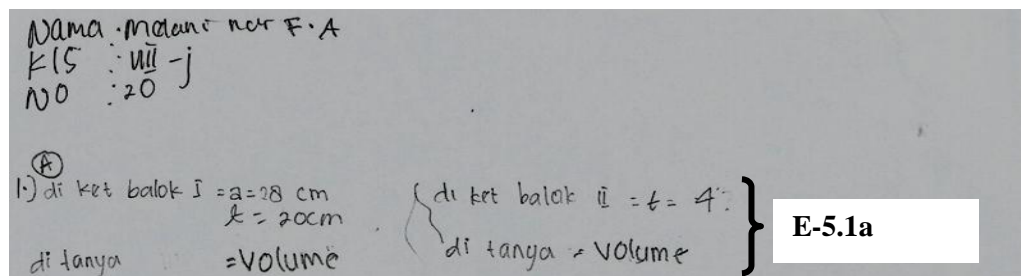 Nama . Melani nur F. A
Kls : VIII - j
NO : 20
A
1.) di ket balok I = a = 28 cm
t = 20cm
di tanya = Volume
di ket balok II = t = 4?
di tanya = Volume
E-5.1a